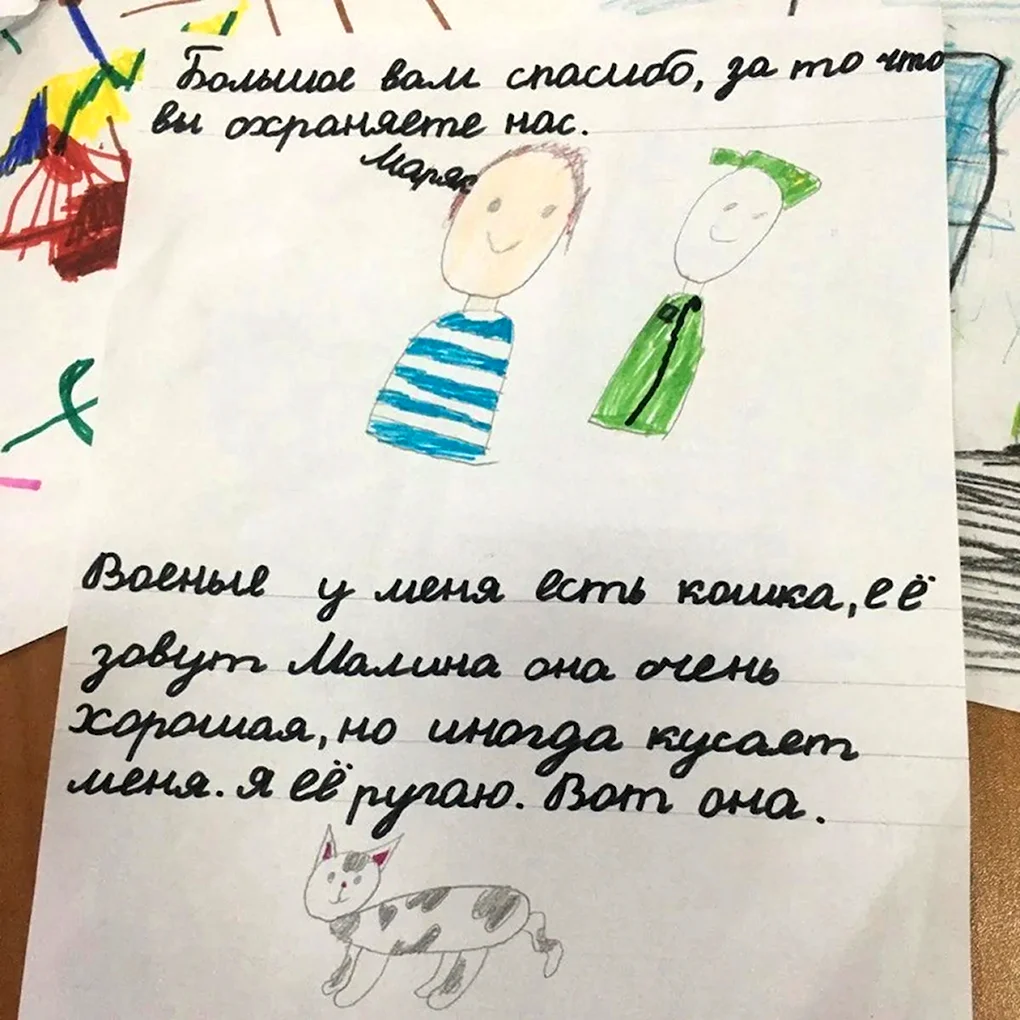 Большое вам спасибо, за то что
вы охраняете нас.
Военые у меня есть кошка, её
зовут Малина она очень
хорошая, но иногда кусает
меня. Я её ругаю. Вот она.